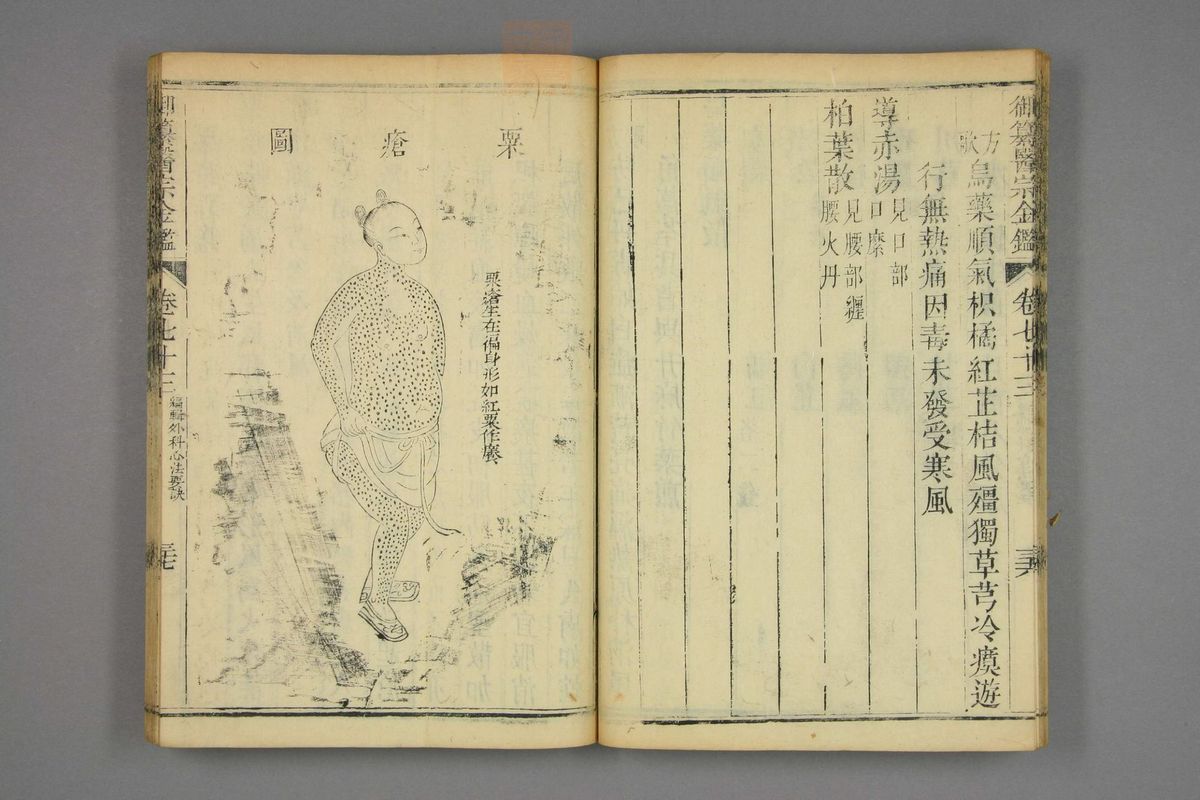 御纂醫宗金鑑
卷七十三
三十六
方歌
烏藥順氣枳橘紅芷桔風殭獨草芎冷瘼遊
行無熱痛因毒未發受寒風
導赤湯 見口部
口糜
柏葉散 見腰部纏
腰火丹
粟瘡圖
粟瘡生在偏身形如紅粟作癢
御纂醫宗金鑑
卷七十三
編輯外科心法要訣
三十七